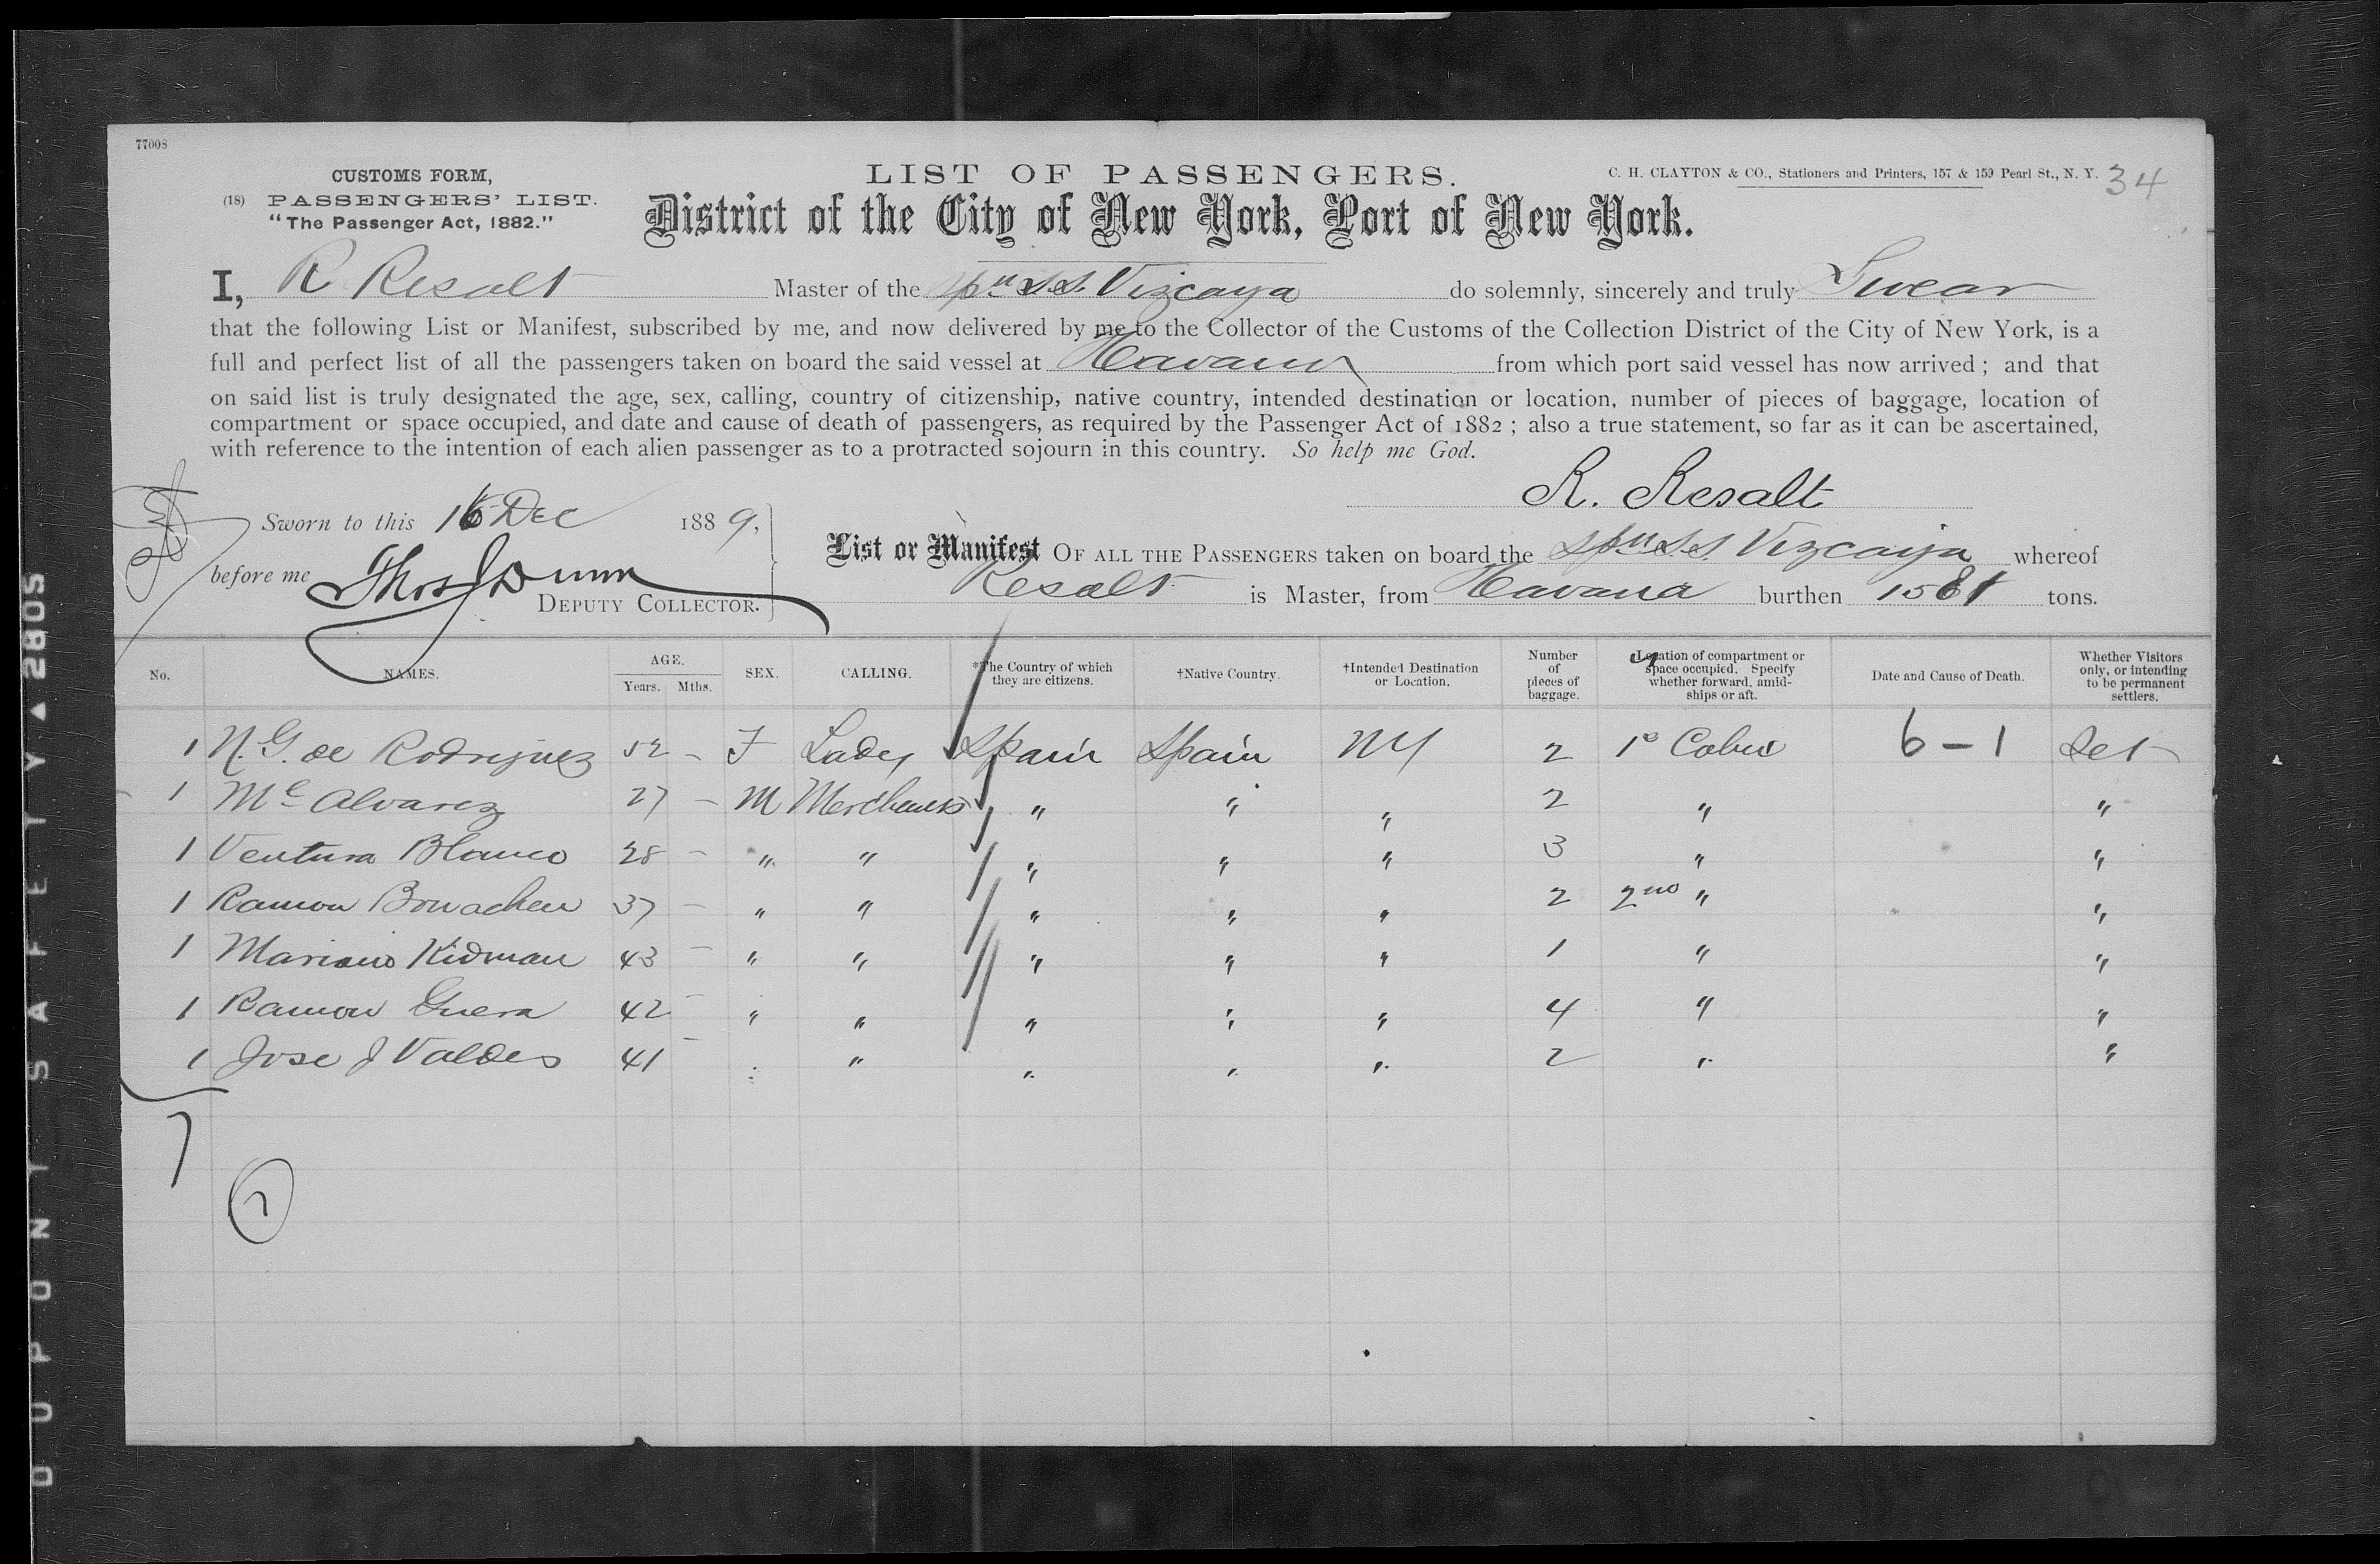 77008
CUSTOMS FORM,
(18) PASSENGERS' LIST.
"The Passenger Act, 1882."
LIST OF PASSENGERS.
C. H. CLAYTON & CO., Stationers and Printers, 157 & 159 Pearl St., N. Y. 34
District of the City of New York, Port of New York.
I, R Resalt Master of the Spn S.S. Vizcaya do solemnly, sincerely and truly Swear
that the following List or Manifest, subscribed by me, and now delivered by me to the Collector of the Customs of the Collection District of the City of New York, is a
full and perfect list of all the passengers taken on board the said vessel at Havana from which port said vessel has now arrived ; and that
on said list is truly designated the age, sex, calling, country of citizenship, native country, intended destination or location, number of pieces of baggage, location of
compartment or space occupied, and date and cause of death of passengers, as required by the Passenger Act of 1882 ; also a true statement, so far as it can be ascertained,
with reference to the intention of each alien passenger as to a protracted sojourn in this country. So help me God.
R. Resalt
Sworn to this 16 Dec 1889,
before me Thos J Dunn
DEPUTY COLLECTOR.
List or Manifest OF ALL THE PASSENGERS taken on board the Spn S.S. Vizcaya whereof
Resalt is Master, from Havana burthen 1581 tons.
No. NAMES. AGE. Years. Mths. SEX. CALLING. *The Country of which they are citizens. †Native Country. †Intended Destination or Location. Number of pieces of baggage. Location of compartment or space occupied. Specify whether forward, amidships or aft. Date and Cause of Death. Whether Visitors only, or intending to be permanent settlers.
1 N. G. de Rodriguez 52 - F Lady Spain Spain NY 2 1e Cabin 6 - 1 Set
1 Mc Alvarez 27 - M Merchants " " " 2 " "
1 Ventura Blanco 28 - " " " " " 3 " "
1 Ramon 37 - " " " " " 2 2nd " "
1 Mariano Kidman 43 - " " " " " 1 " "
1 Ramon Guera 42 - " " " " " 4 " "
1 Jose J Valdes 41 - " " " " " 2 " "
7
7
DUPONT SAFETY ▲ 280S